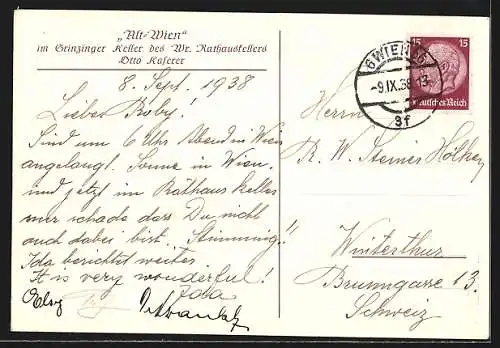 „Alt-Wien“
im Grinzinger Keller des Wr. Rathauskellers
Otto Kaserer
8. Sept. 1938
Lieber Roby!
Sind um 6 Uhr Abend in Wien
angelangt. Sonne in Wien.
und jetzt im Rathaus Keller
nur schade das Du nicht
auch dabei bist. Stimmung!!
Ida berichtet weiter.
It is very wonderful!
Ida
15 15
Deutsches Reich
WIEN
-9.IX.38.13
3f
Herrn
R. W. Steiner
Winterthur
Brunngasse 13.
Schweiz